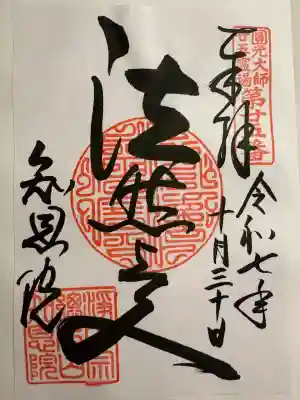 奉拝
圓光大師
廿五霊場
第廿五番
令和七年
十月三十日
法然上人
知恩院
浄土宗
総本山
知恩院